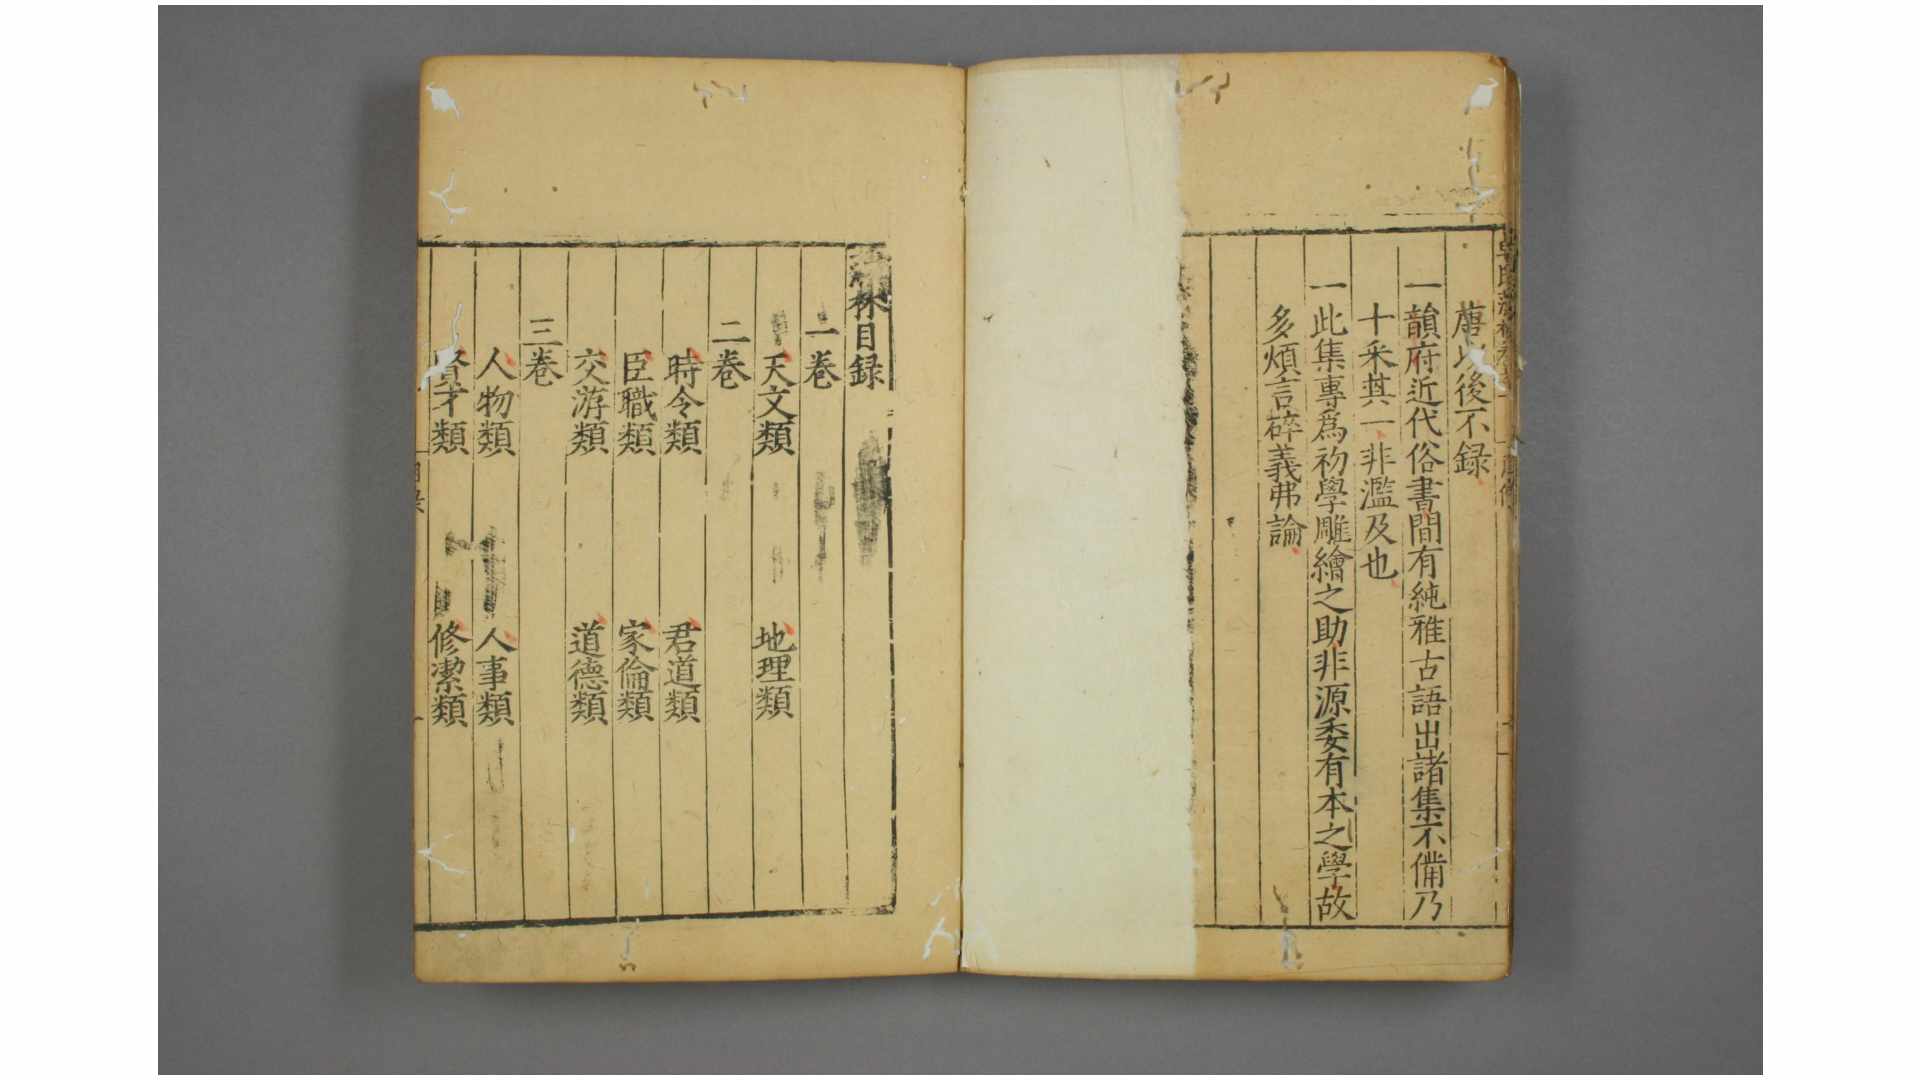 唐以後不録
一韻府近代俗書間有純雅古語出諸集不備乃
十采其一非濫及也
一此集專爲初學雕繪之助非源委有本之學故
多煩言碎義弗論
林目録
一卷
天文類 地理類
二卷
時令類 君道類
臣職類 家倫類
交游類 道德類
三卷
人物類 人事類
賢才類 修潔類